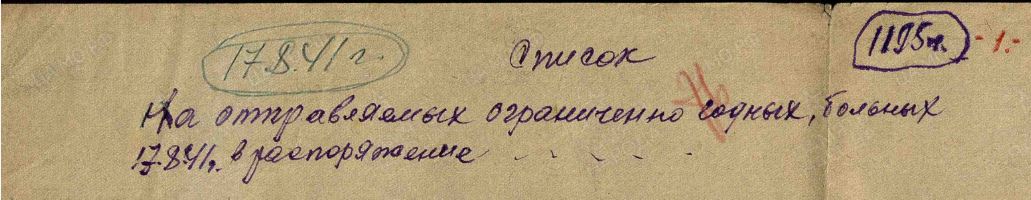 17.8.41 г.
Список
1195 ч. - 1.-
На отправляемых ограниченно годных, больных
17.8.41г. в распоряжение . . . . .